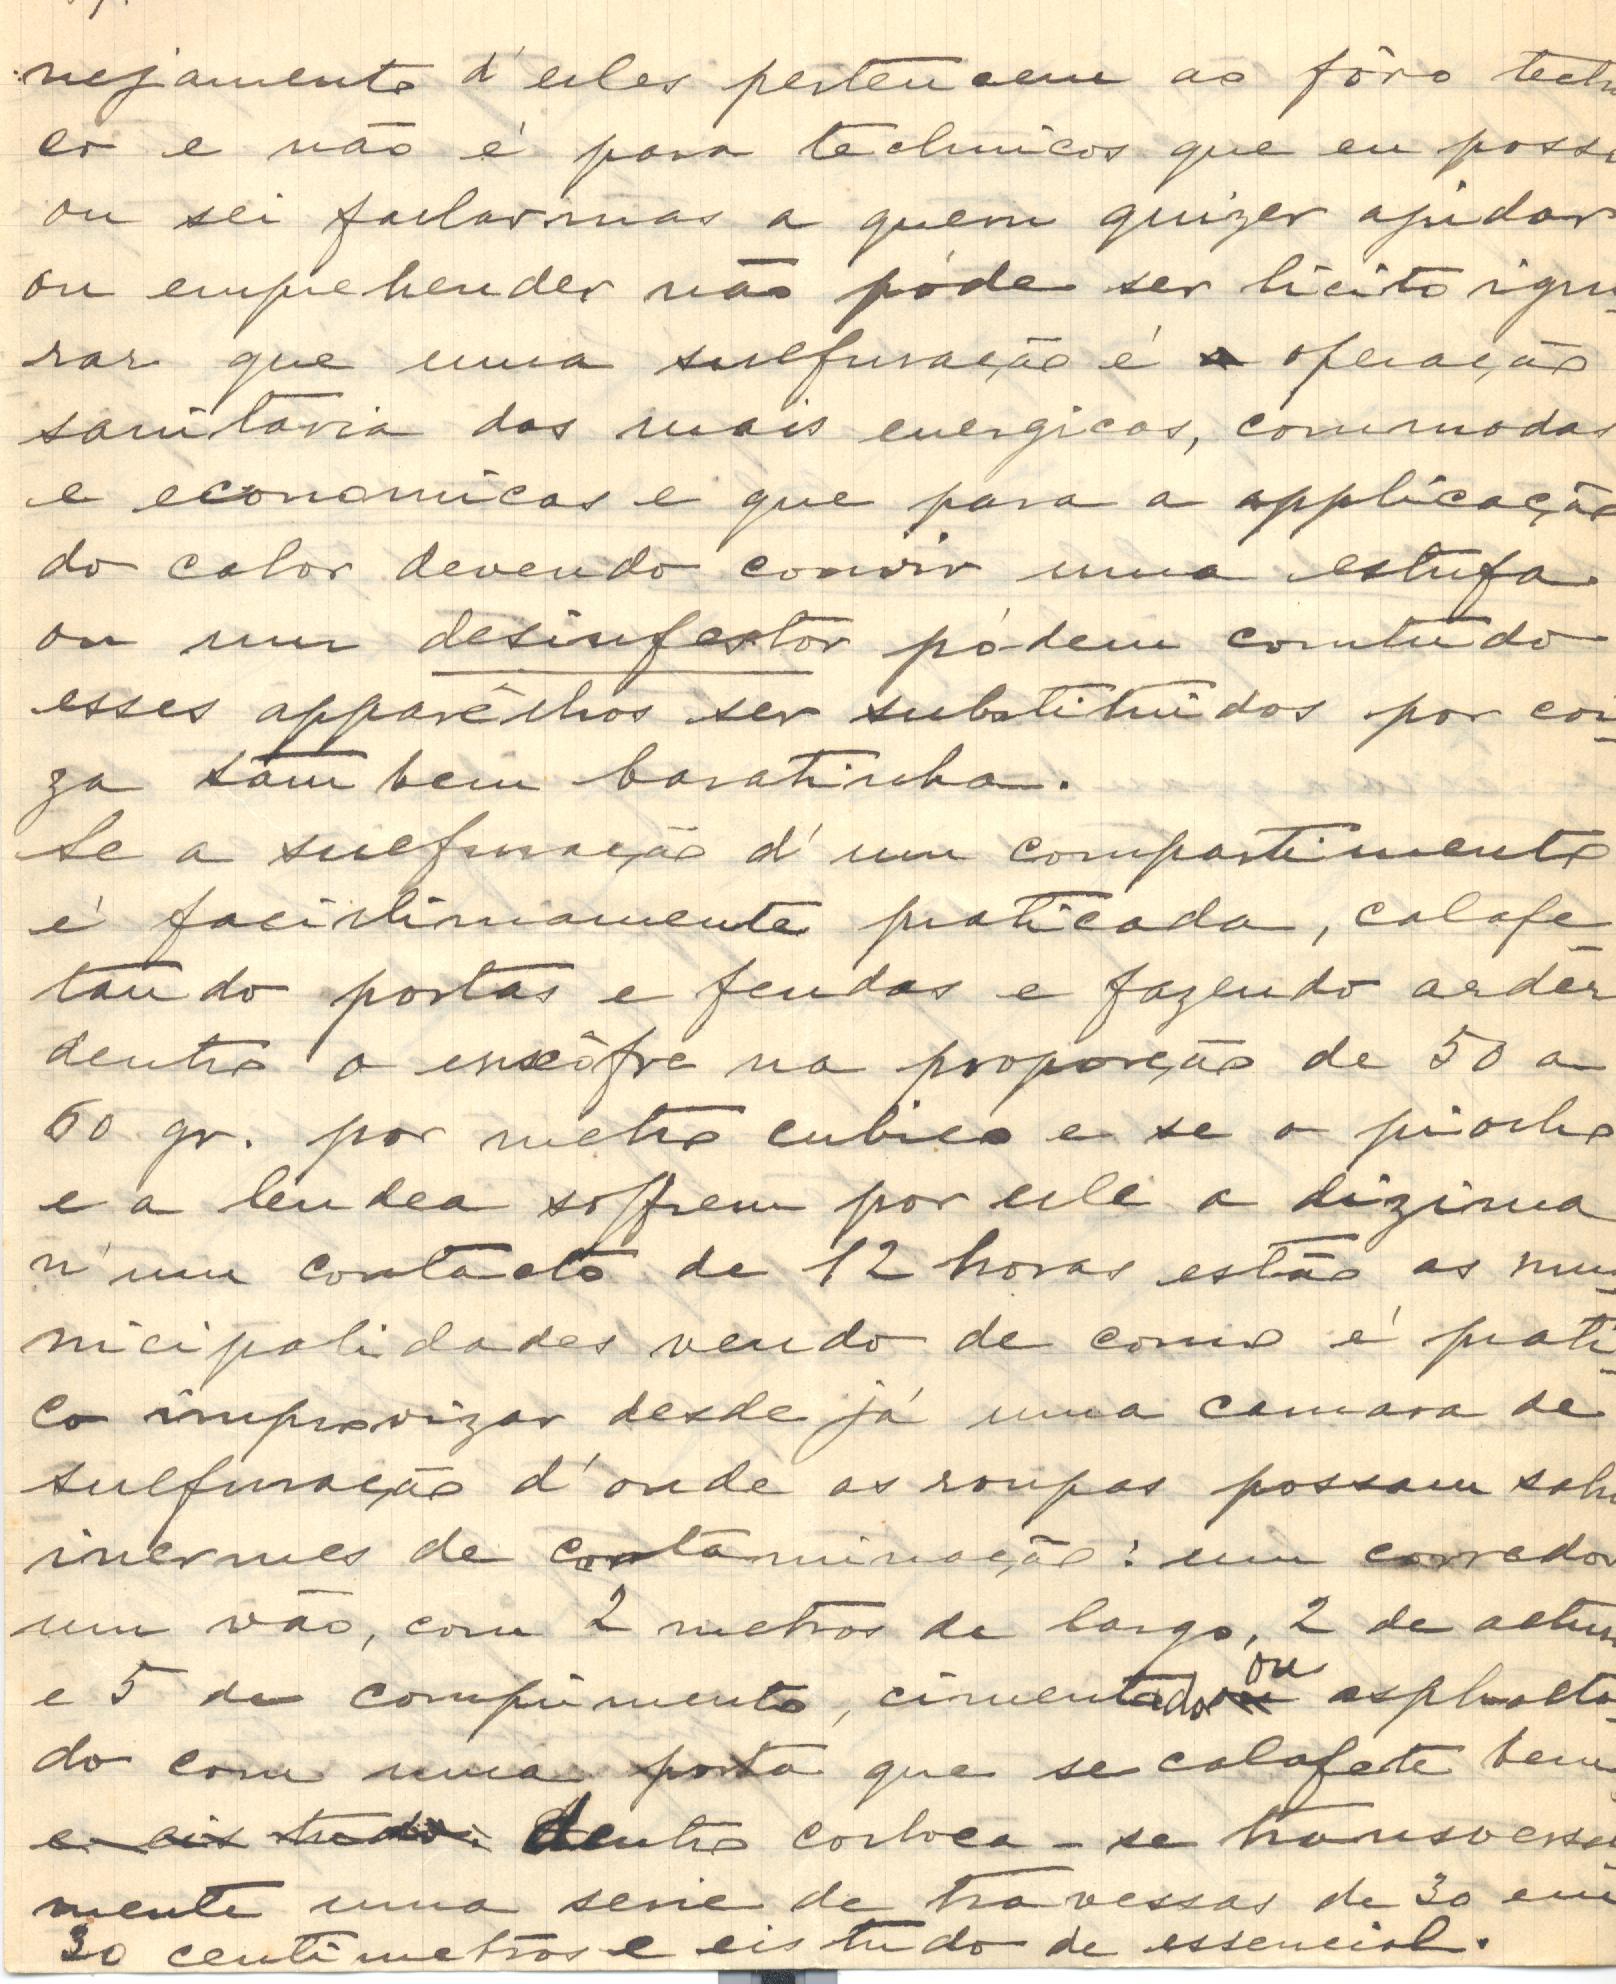 nejamento d'elles pertencem ao fôro techn
co e não é para technicos que eu posso
ou sei fallar mas a quem quizer ajudar
ou emprehender não póde ser licito igno
rar que uma sulfuração é operação
sanitaria das mais energicas, commodas
e economicas e que para a applicação
do calor devendo convir uma estufa
ou um desinfector pódem comtudo
esses apparêlhos ser substituidos por cou
za tam bem baratinha.
Se a sulfuração d'um compartimento
é facillimamente praticada, calafe
tando portas e fendas e fazendo ardêr
dentro o enxôfre na proporção de 50 a
60 gr. por metro cubico e se o piolho
e a lendea soffrem por elle a dizima
n'um contacto de 12 horas estão as mu
nicipalidades vendo de como é prati
co improvizar desde já uma camara de
sulfuração d'onde as roupas possam sahi
inermes de contaminação: um corredor
um vão, com 2 metros de largo, 2 de altura
e 5 de comprimento, cimentado ou asphalta
do com uma porta que se calafete bem
e eis tudo. Dentro colloca-se transversal
mente uma serie de travessas de 30 em
30 centimetros e eis tudo de essencial.